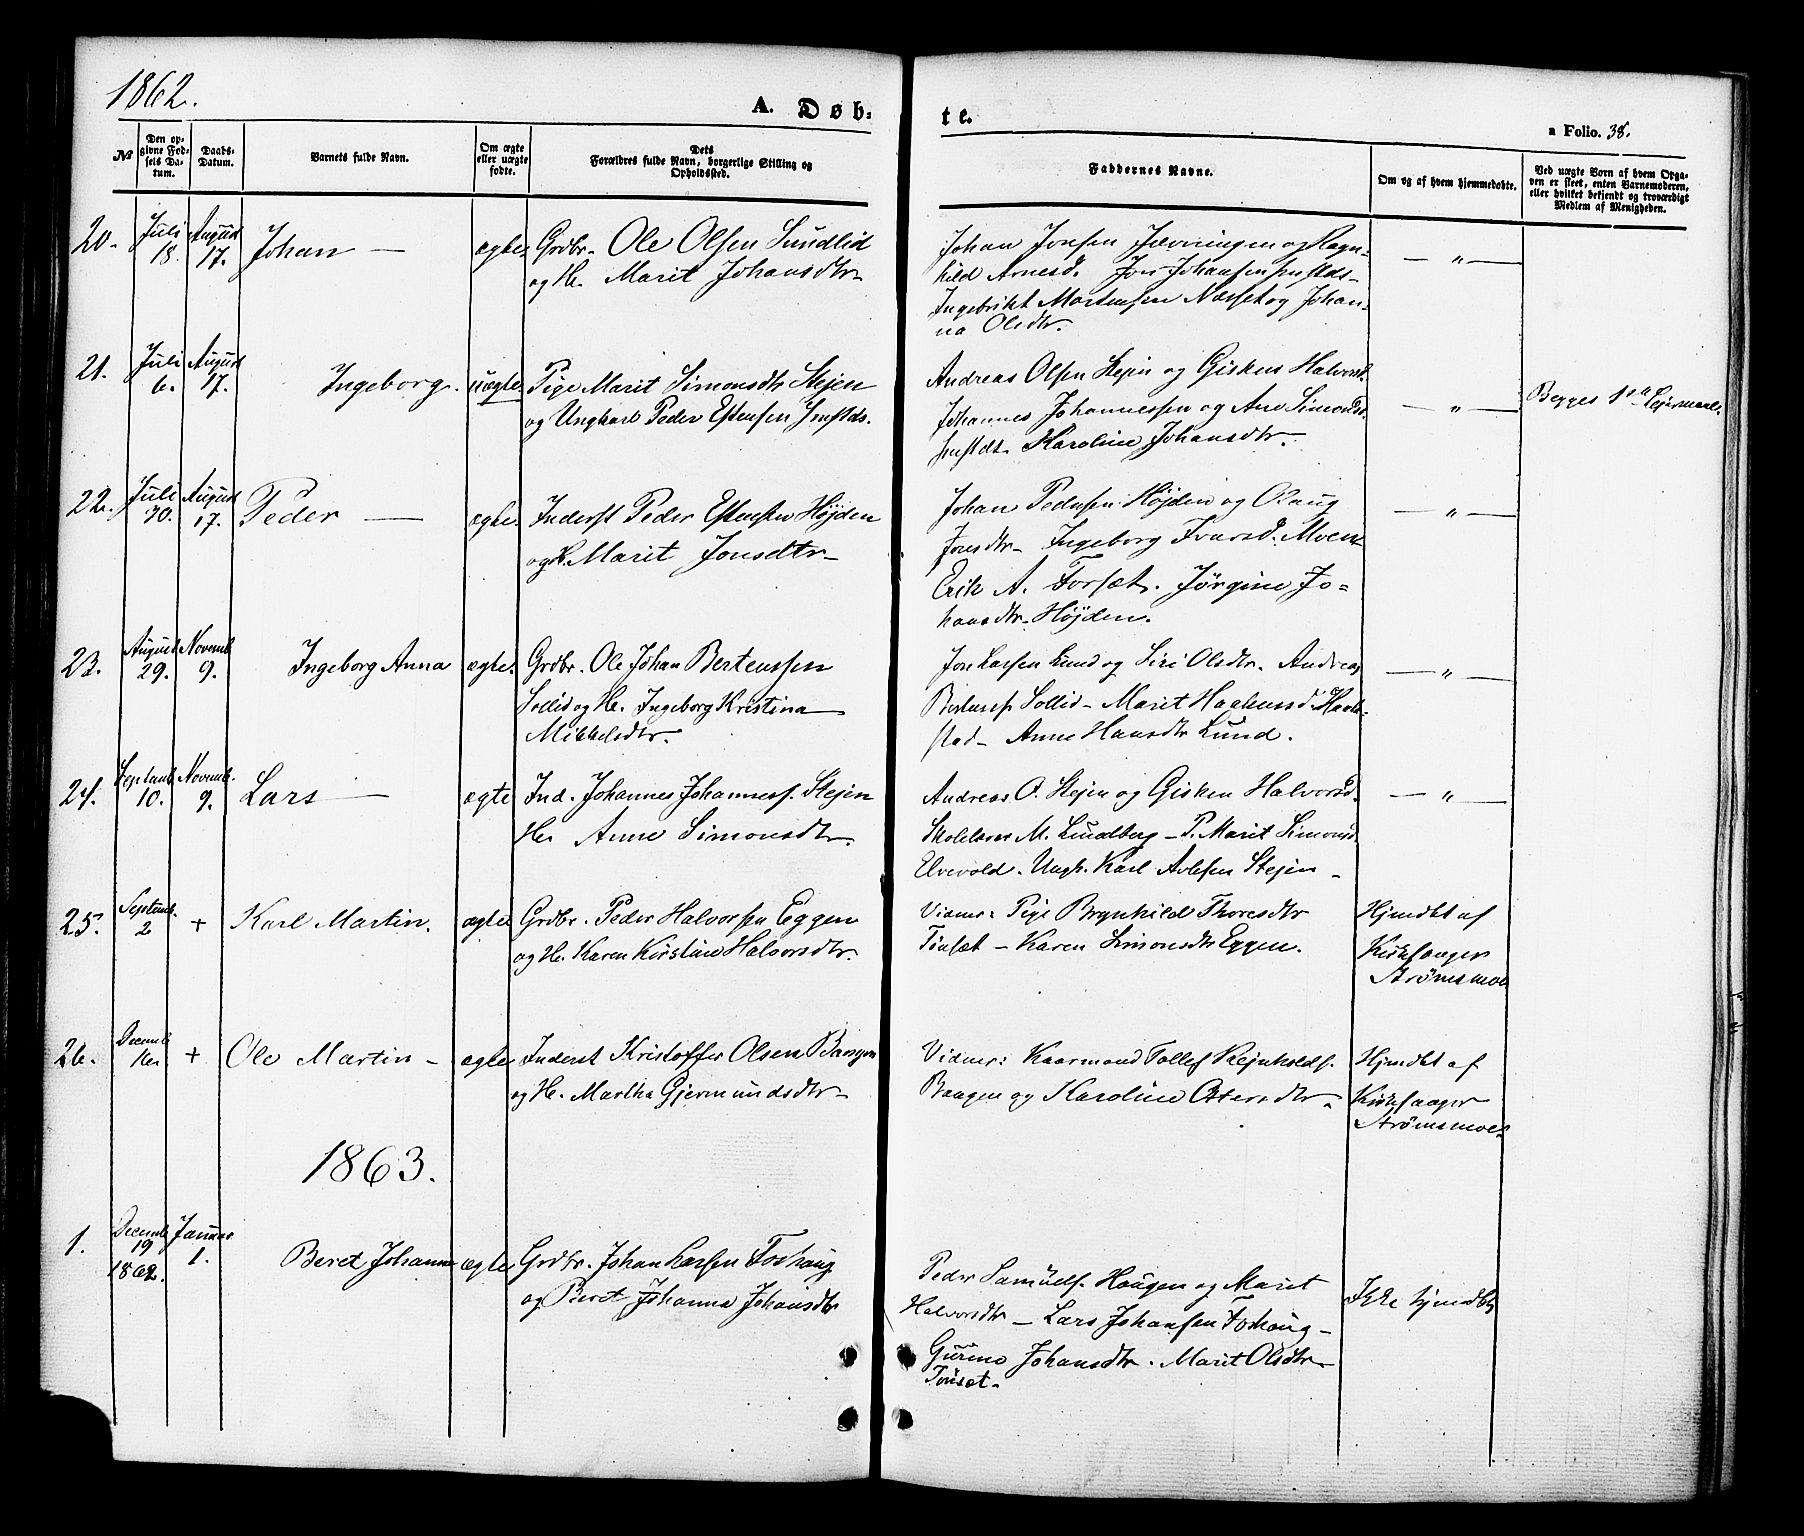 1862.
A. Døb-
te.
a Folio. 38.
№
Den opgivne Fødsels Datum.
Daabs-Datum.
Barnets fulde Navn.
Om ægte eller uægte fødte.
Dets Forældres fulde Navn, borgerlige Stilling og Opholdssted.
Faddernes Navne.
Om og af hvem hjemmedøbte.
Ved uægte Børn af hvem Opgaven er skeet, enten Barnemoderen, eller hvilket bekjendt og troværdigt Medlem af Menigheden.
20. Juli 18. August 17. Johan — ægte. Grdbr. Ole Olsen Sundlid
og H. Marit Johansdtr.
Johan Jonsen Jævningen og Ragn-
hild Arnesd. Jon Johansen smstds-
Ingebrikt Mortensen Næsset og Johan-
na Olsdtr.
— " —
21. Juli 6. August 17. Ingeborg. uægte. Pige Marit Simonsdtr Stejen
og Ungkarl Peder Estensen Smstds.
Andreas Olsen Stejen og Gisken Halvorsd.
Johannes Johannessen og Ane Simonsd.
smstds. Karoline Johansdtr.
— " —
Begges 1ste Lejermaal.
22. Juli 30. August 17. Peder — ægte. Inderst Peder Estensen Højden
og H. Marit Jonsdtr.
Johan Pedersen Højden og Olaug
Jonsdtr. Ingeborg Ivarsd. Moen
Erik A. Forsæt. Jørgine Jo-
hansdtr Højden.
— " —
23. August 29. Novemb. 9. Ingeborg Anna ægte. Grdbr. Ole Johan Bertenssen
Sollid og H. Ingeborg Kristina
Mikkelsdtr.
Jon Larsen Lund og Siri Olsdtr. Andreas
Bertenss. Sollid. Marit Haakensd.
stad. Anne Hansdtr Lund.
— " —
24. Septemb. 10. Novemb. 9. Lars — ægte Ind. Johannes Johanness. Stejen
H. Anne Simonsdtr.
Andreas O. Stejen og Gisken Halvorsd.
Skolelærer M. Lundberg. P. Marit Simonsd.
Elvevold. Ungk. Karl Stejen
— " —
25. Septemb. 2 + Karl Martin. ægte Grdbr. Peder Halvorsen Eggen
og H. Karen Kirstine Halvorsdtr.
Vidner: Pige Brynhild Thoresdtr
Tønsæt. Karen Simonsdtr Eggen.
Hjmdbt af
Kirkesanger
Strømsmoe
26. Decemb. + Ole Martin ægte Inderst Kristoffer Olsen Bangen
og H. Martha Gjermundsdtr.
Vidner: Kaarmand Tollef Rejnholds.
Baagen og Karoline
Hjmdbt af
Kirkesanger
Strømsmoe
1863.
1. Decemb. 19 1862. Januar 1. Beret Johanna ægte Grdbr. Johan Larsen Foshaug
og Beret Johanna Johansdtr
Peder Samuels. Haugen og Marit
Halvorsdtr — Lars Johansen Foshaug
Gurine Johansdtr. Marit Olsdtr
Tønsæt.
Ikke hjmdbt